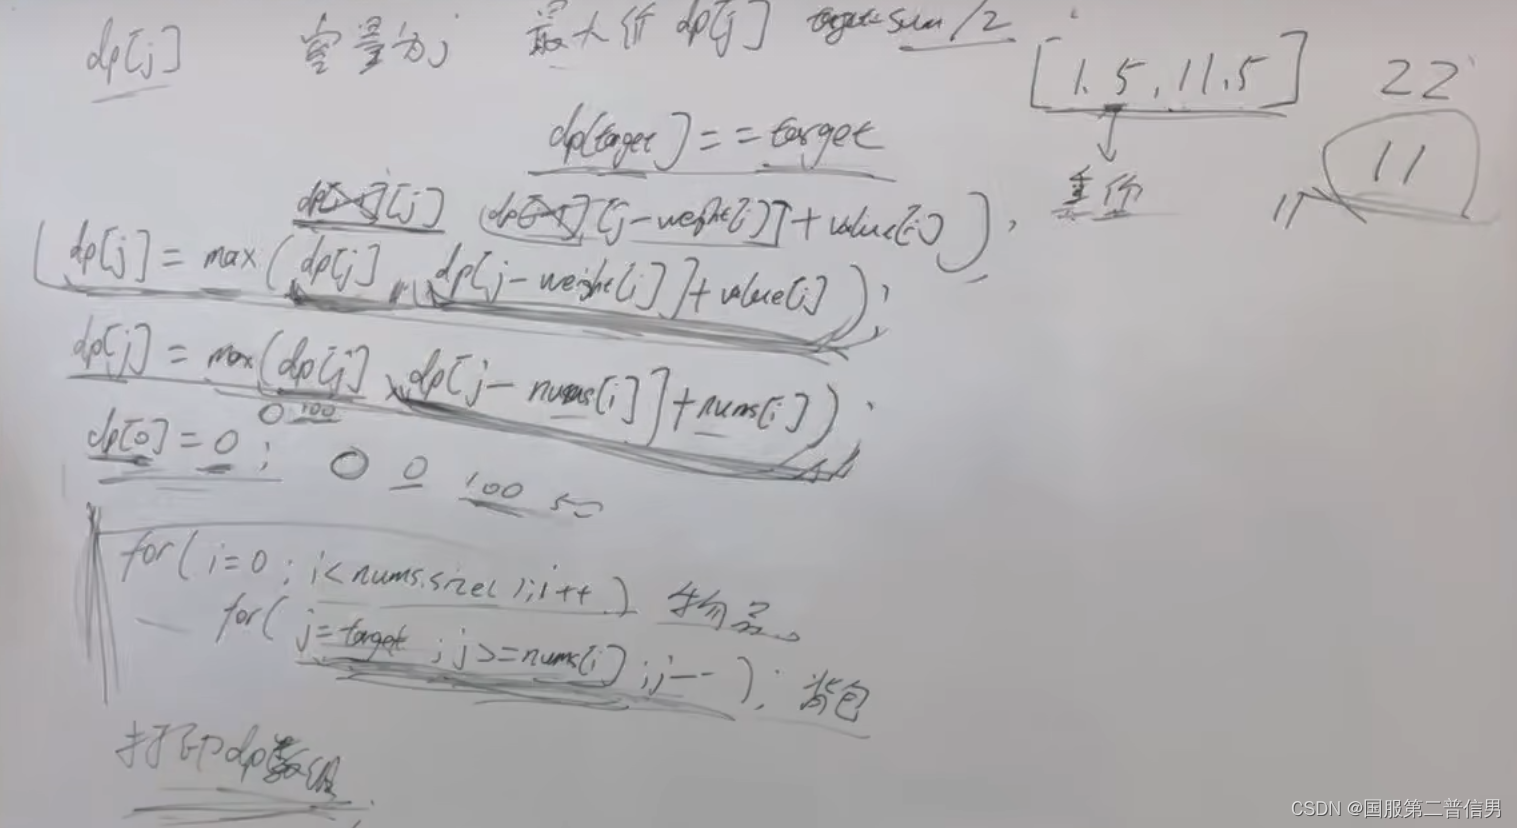 dp[j] 容量为j 最大价 dp[j] target=sum/2
[1.5,11.5] 22
dp[target]==target
11
重价
11
dp[i-1][j] dp[i-1][j-weight[i]]+value[i]),
dp[j]=max(dp[j],dp[j-weight[i]]+value[i]);
dp[j]=max(dp[j],dp[j-nums[i]]+nums[i]);
0 100
dp[0]=0; 0 0 100
for(i=0;i<nums.size();i++) 物品。
for(j=target;j>=nums[i];j--); 背包
打印dp数组
CSDN @国服第二普信男